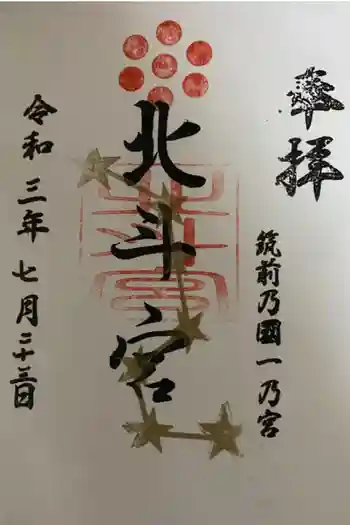 奉拝
筑前乃國一乃宮
北斗宮
令和三年七月二十三日
北斗宮